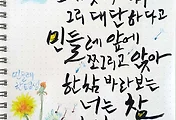 그리 대단하다고
민들레 앞에
쪼그리고 앉아
한참 바라보는
너는 참
민들레